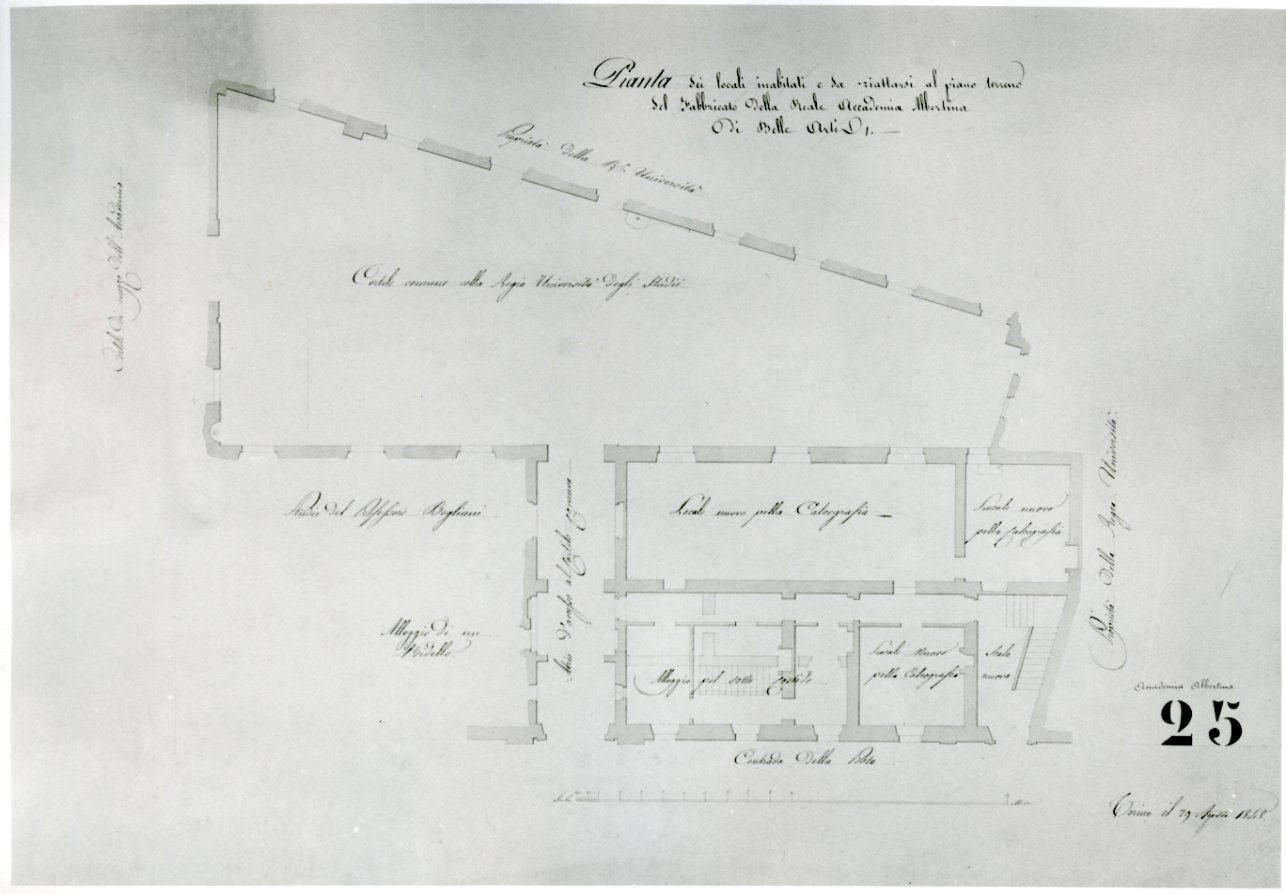 Pianta dei locali inabitati e da riattarsi al piano terreno
del Fabbricato della Reale Accademia Albertina
di Belle Arti
Proprietà della R.a Università
Cortile comune colla Regia Università degli Studii
Cortil di mezzo dell'Accademia
Studio del Professore Bogliani
Locale nuovo pella Calcografia
Locale nuovo
pella Calcografia
Atrio d'accesso al Cortile Comune
Proprietà della Regia Università
Alloggio di un
Bidello
Alloggio pel sotto Custode
Locale nuovo
pella Calcografia
Scala
nuova
Contrada della Posta
Accademia Albertina
25
Torino il 29 Agosto 1848